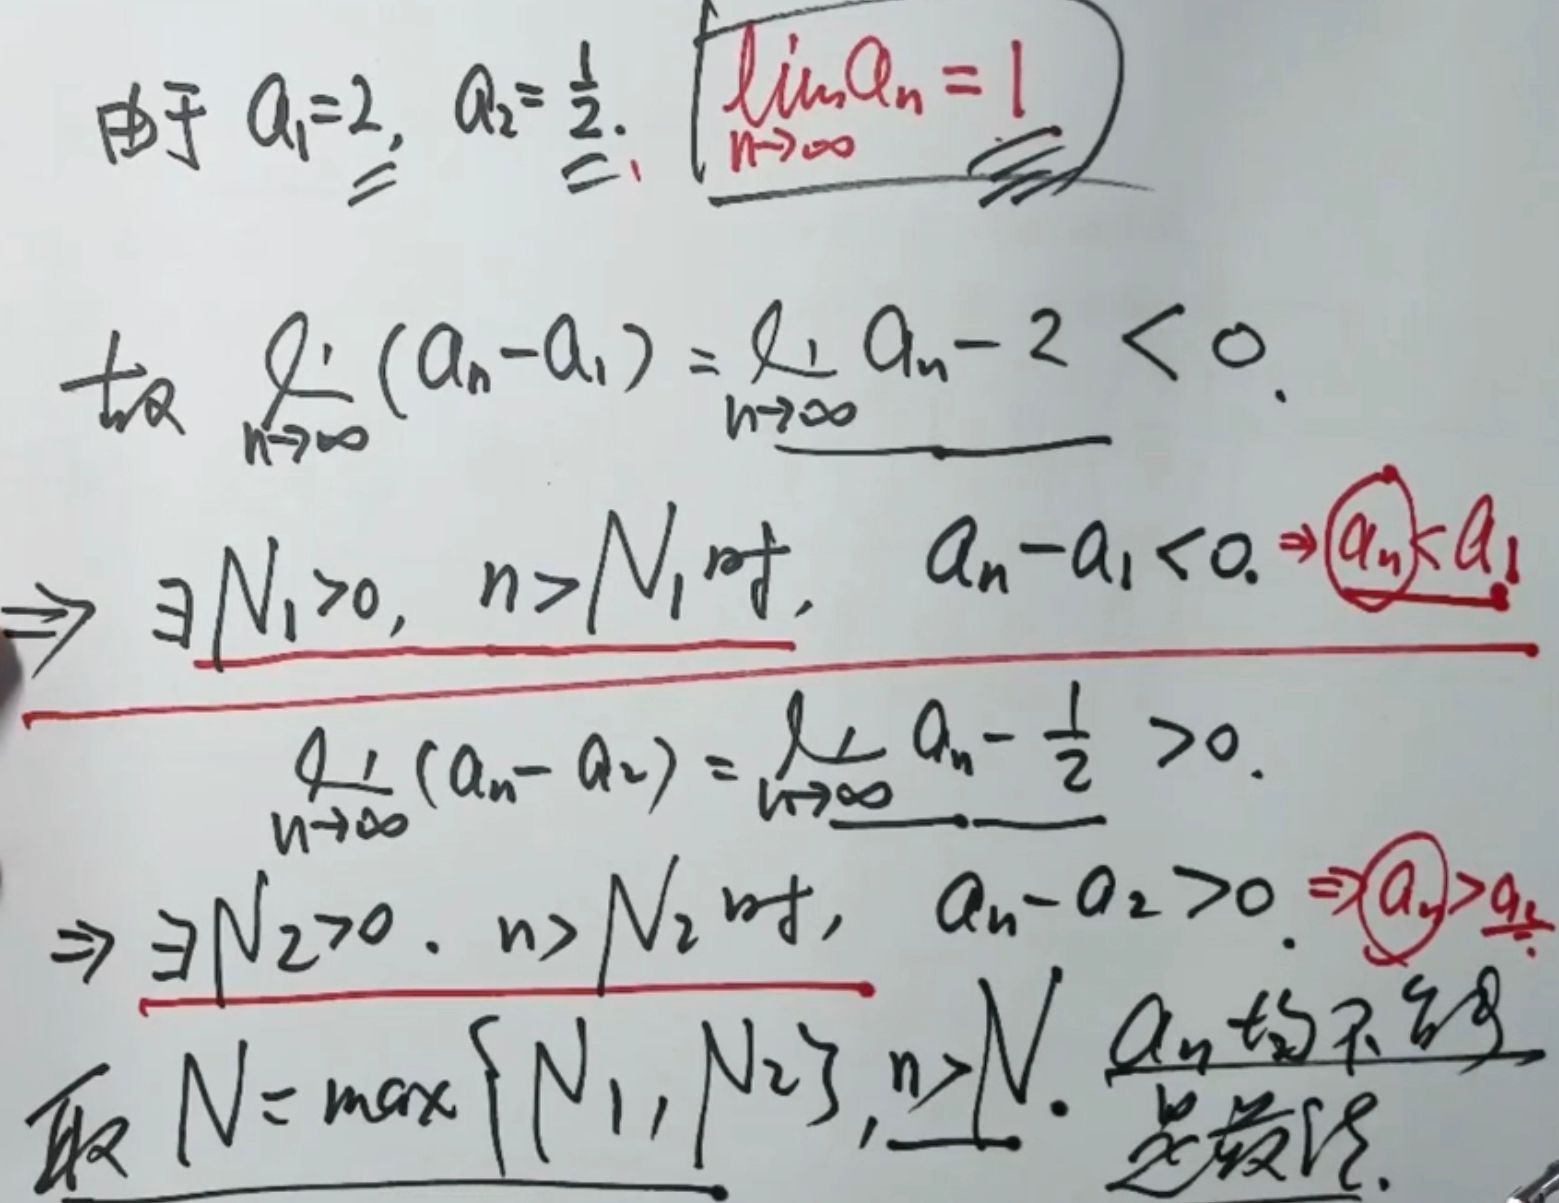 由于 a₁=2, a₂=1/2. lim a_n = 1
n→∞
故 lim (a_n - a₁) = lim a_n - 2 < 0.
n→∞ n→∞
⇒ ∃N₁>0, n>N₁时, a_n - a₁<0. ⇒ a_n<a₁
lim (a_n - a₂) = lim a_n - 1/2 >0.
n→∞ n→∞
⇒ ∃N₂>0. n>N₂时, a_n - a₂>0. ⇒ a_n>a₂
取 N=max{N₁, N₂}, n>N. a_n均不能
是最值.